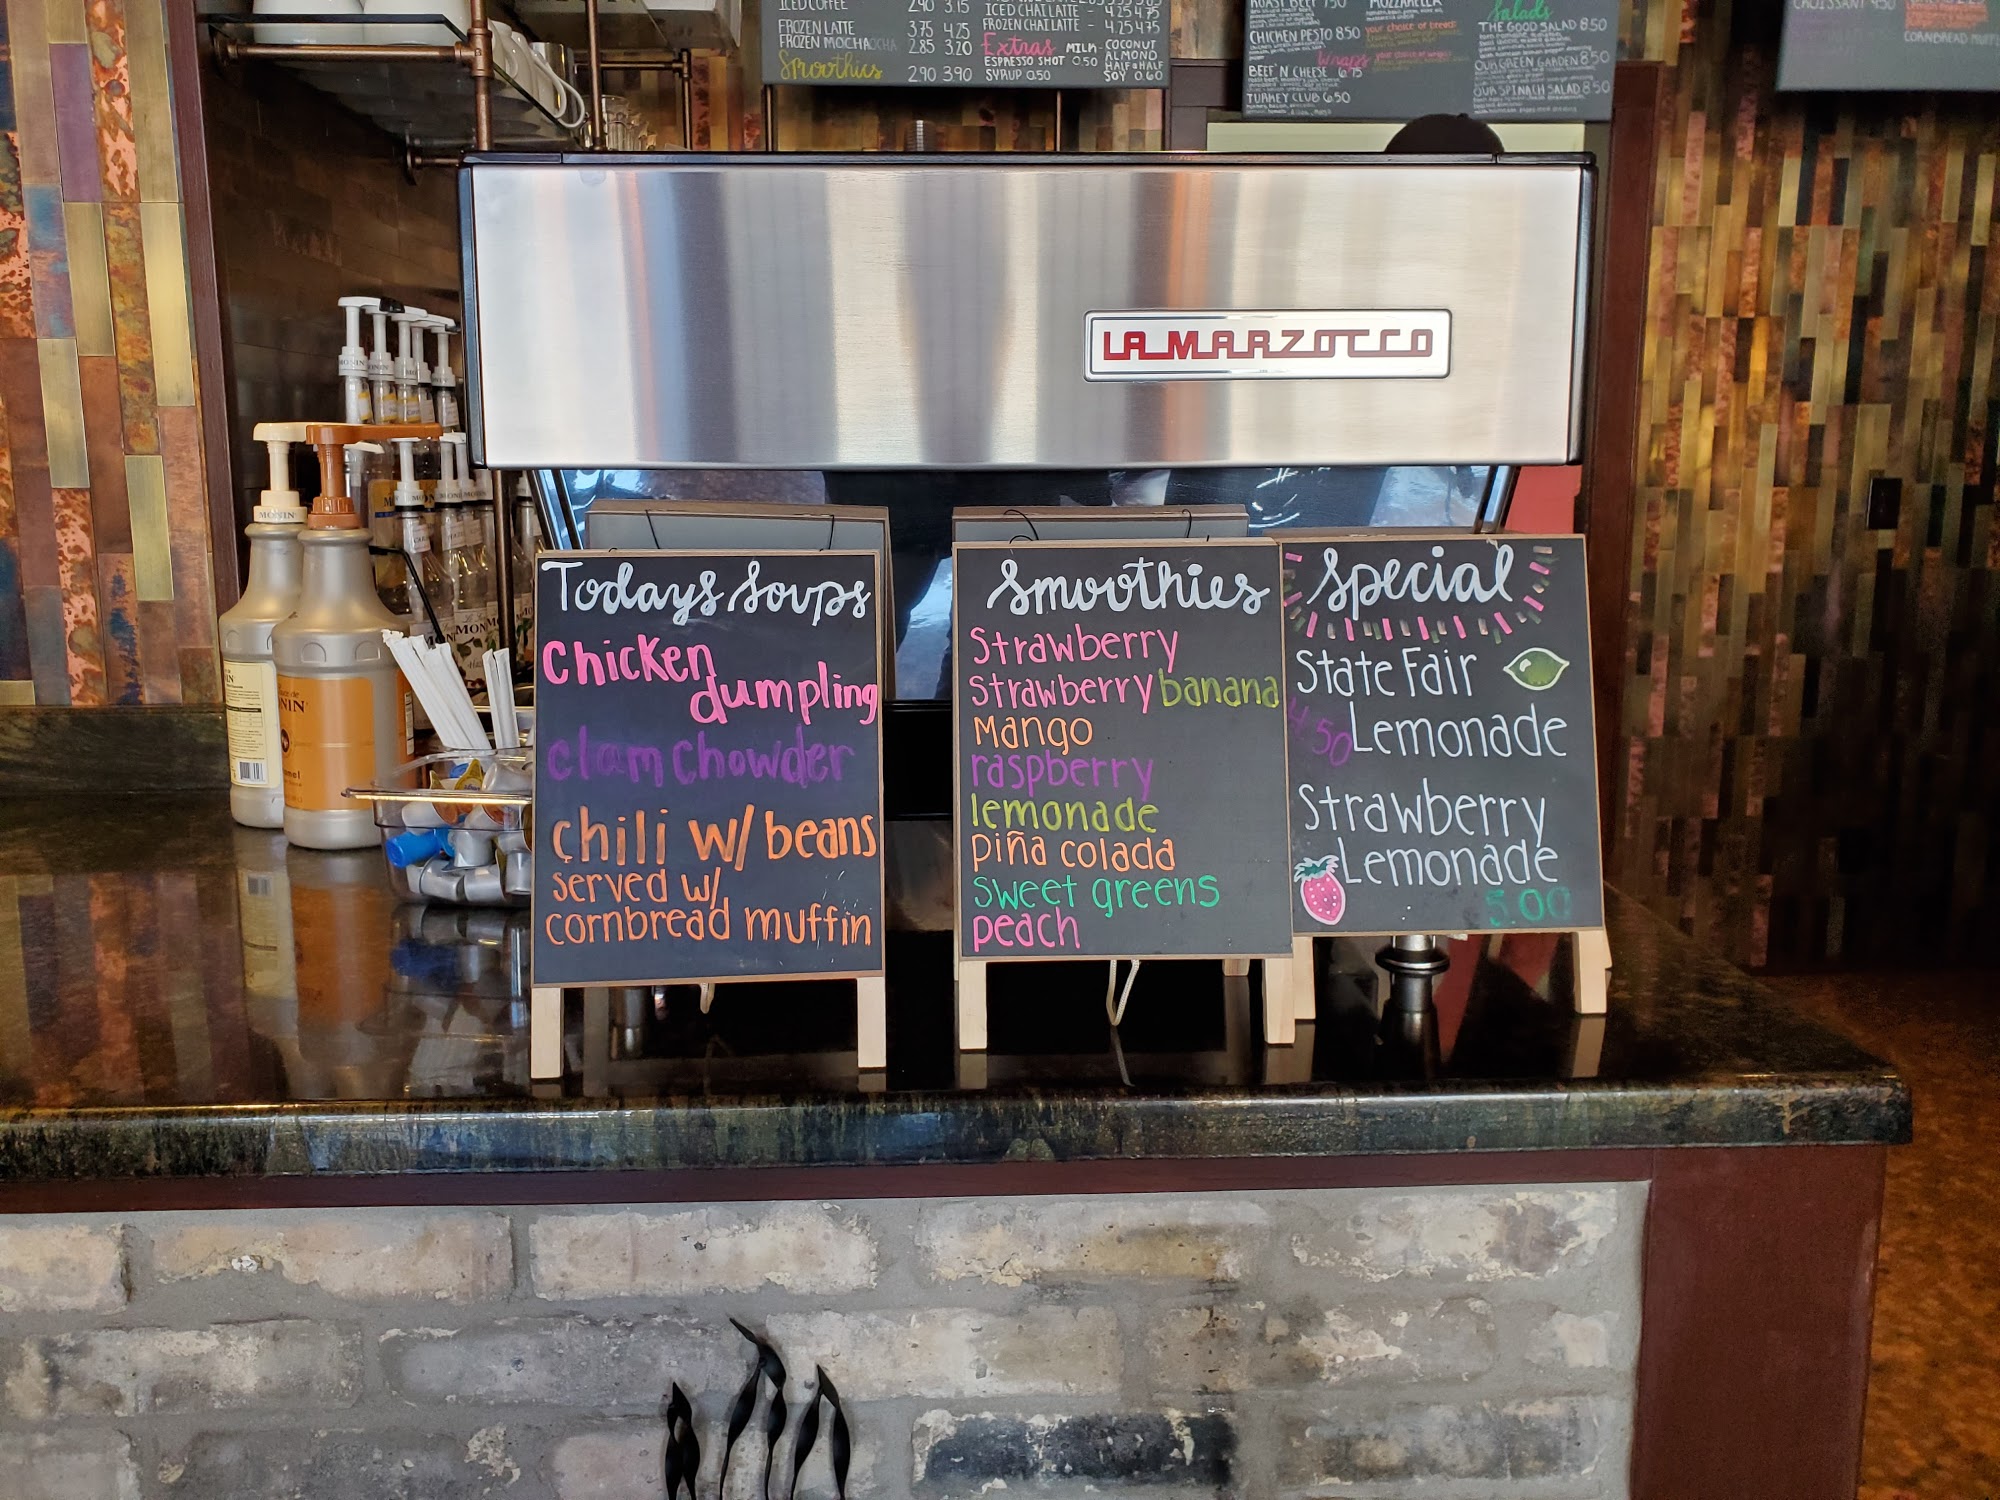 ICED COFFEE 2.90 3.15
FROZEN LATTE 3.75 4.25
FROZEN MOCHA 2.85 3.20
Smoothies 2.90 3.90
ICED CHAI LATTE - 4.25 4.75
FROZEN CHAI LATTE - 4.25 4.75
Extras MILK - COCONUT
ESPRESSO SHOT 0.50 ALMOND
HALF & HALF
SYRUP 0.50 SOY 0.60
ROAST BEEF 7.50
CHICKEN PESTO 8.50
BEEF 'N CHEESE 6.75
TURKEY CLUB 6.50
MOZZARELLA
your choice of bread:
Wraps
Salads
THE GOOD SALAD 8.50
OUR GREEN GARDEN 8.50
OUR SPINACH SALAD 8.50
CROISSANT 4.50
LA MARZOCCO
MONIN
Todays Soups
Chicken
dumpling
clam chowder
chili w/ beans
served w/
cornbread muffin
Smoothies
Strawberry
Strawberry banana
Mango
raspberry
lemonade
piña colada
sweet greens
peach
Special
State Fair
4.50 Lemonade
Strawberry
Lemonade
5.00